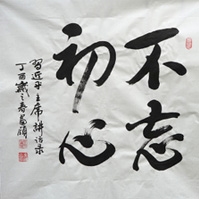 不忘
初心
习近平主席讲话录
丁酉岁之春